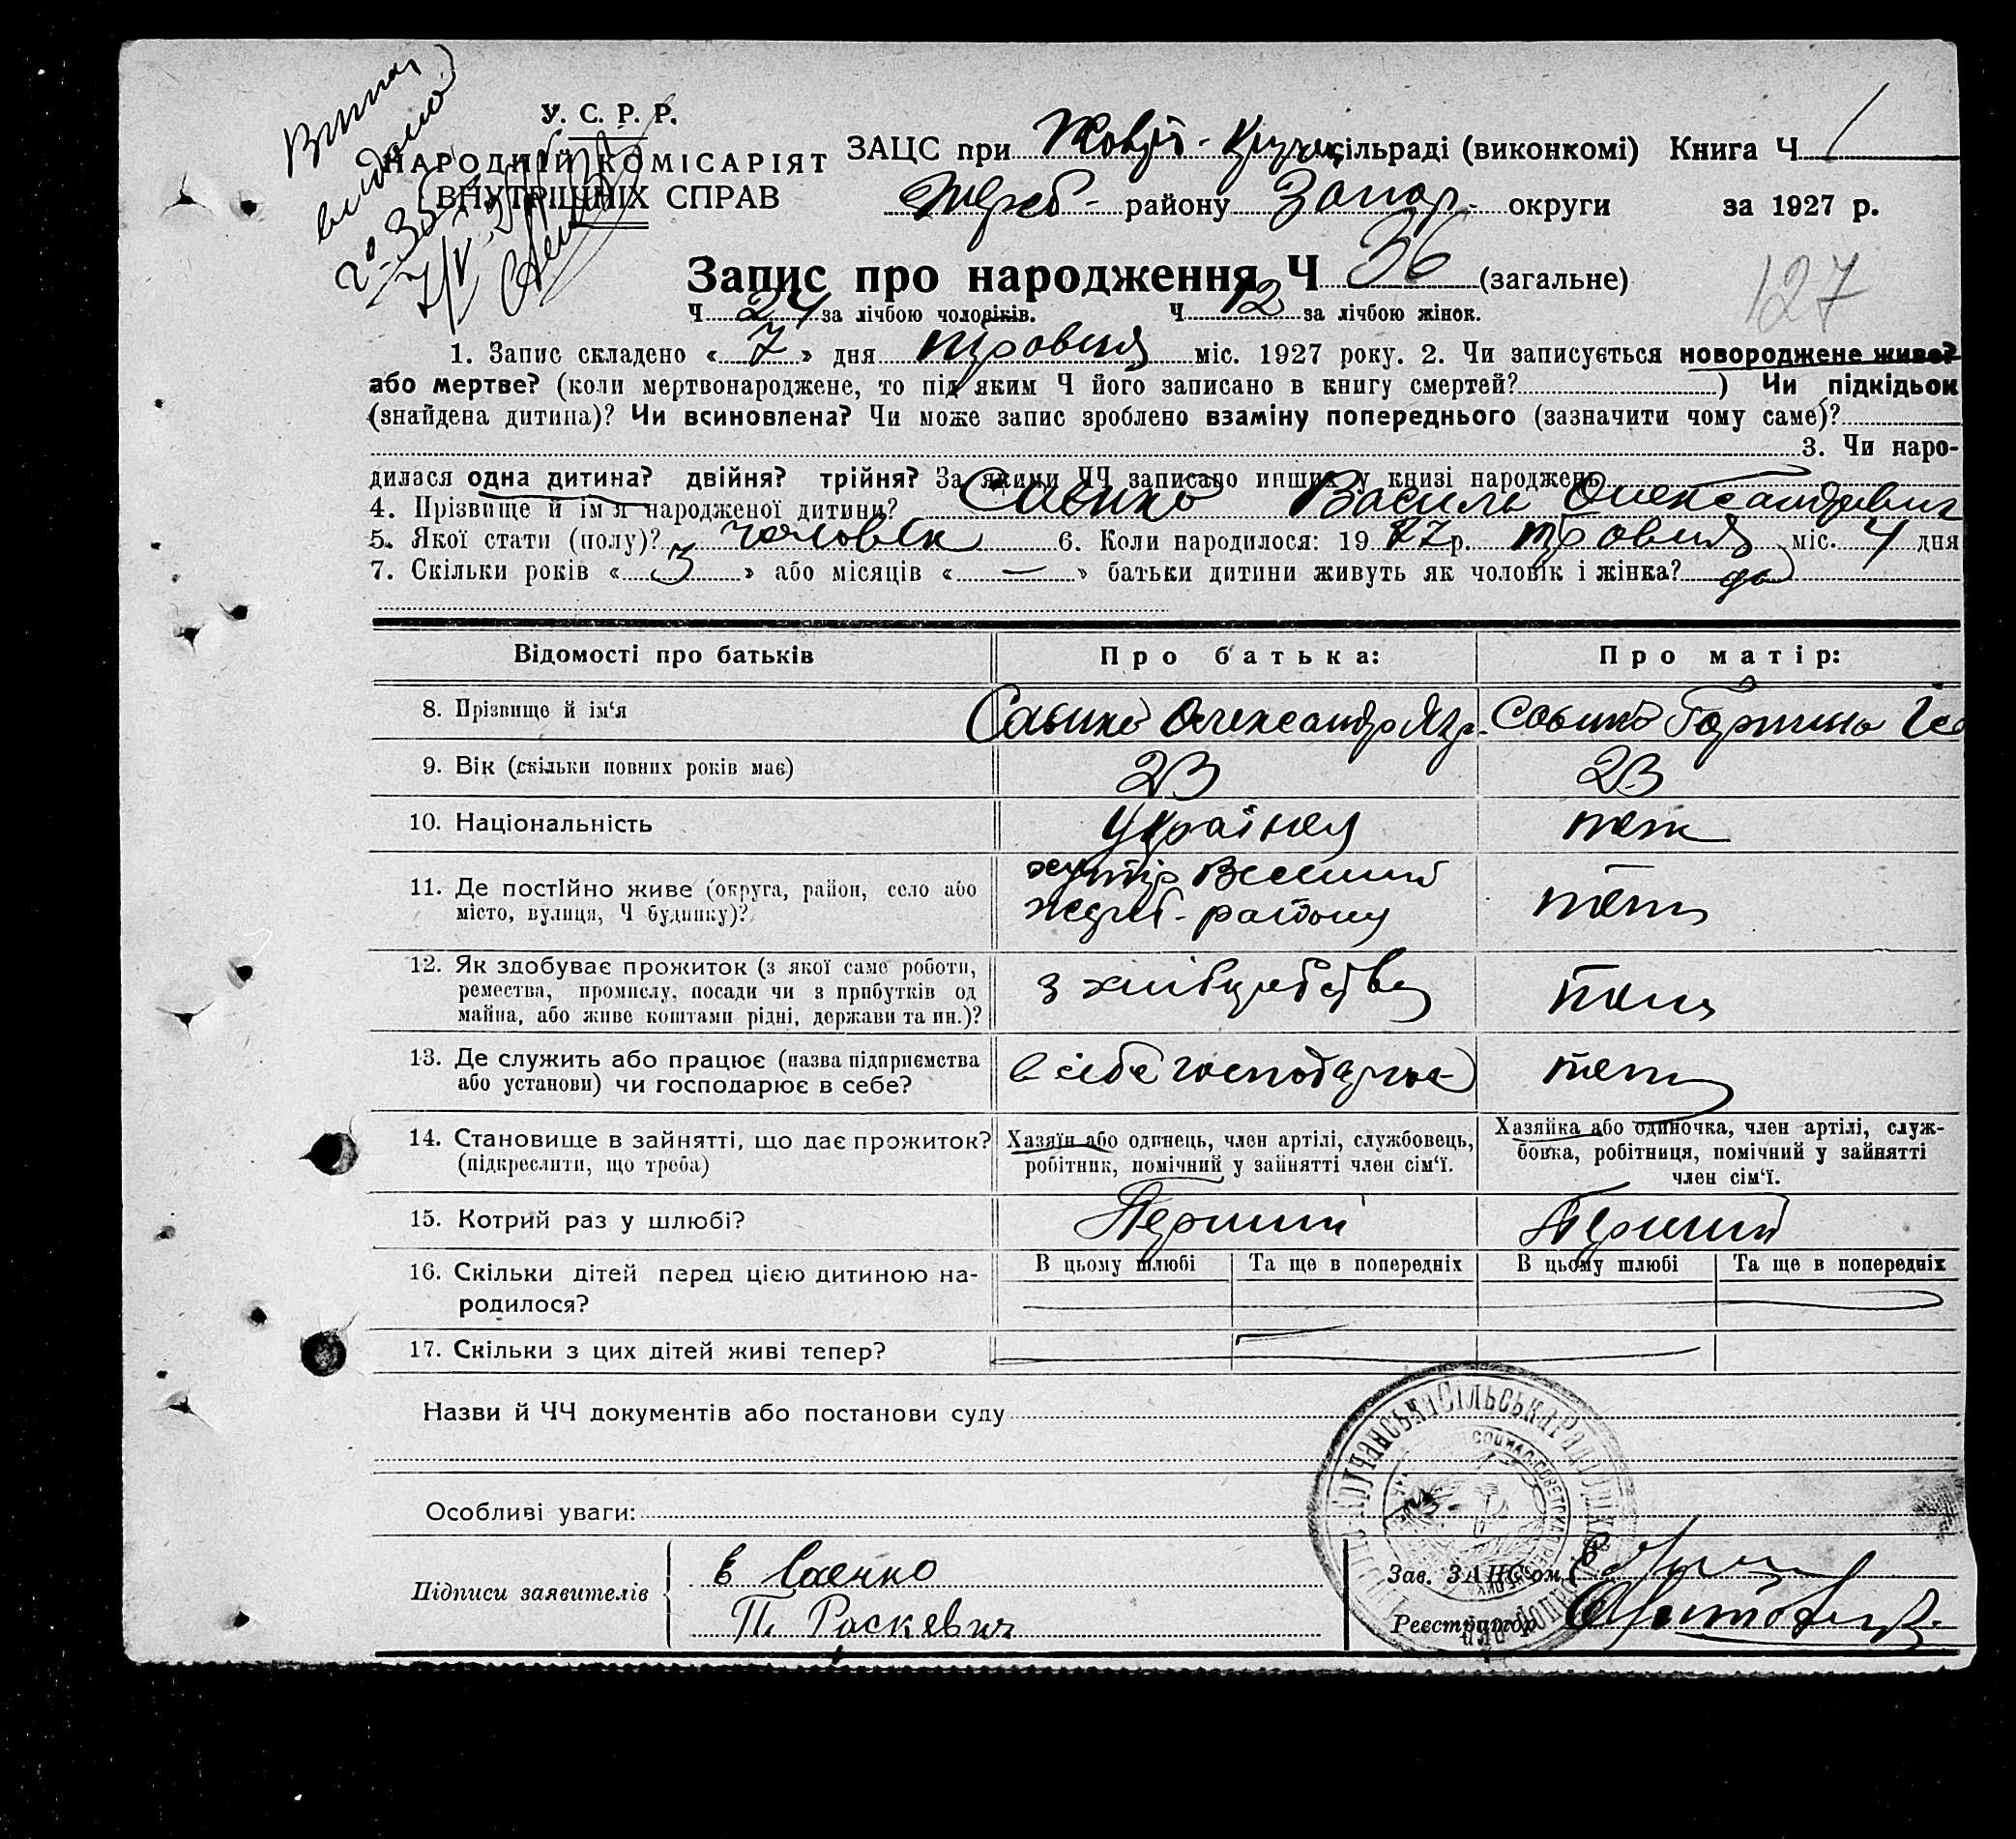 Витяг
видано
7/V
У. С. Р. Р.
НАРОДНИЙ КОМІСАРІЯТ
ВНУТРІШНІХ СПРАВ
ЗАЦС при Жовто-Круч. сільраді (виконкомі) Книга Ч 1
Жереб- району Запор. округи за 1927 р.
Запис про народження Ч 36 (загальне)
127
Ч 24 за лічбою чоловіків. Ч 12 за лічбою жінок.
1. Запис складено « 7 » дня травня міс. 1927 року. 2. Чи записується новороджене живе?
або мертве? (коли мертвонароджене, то під яким Ч його записано в книгу смертей? ) Чи підкідьок
(знайдена дитина)? Чи всиновлена? Чи може запис зроблено взаміну попереднього (зазначити чому саме)?
3. Чи наро-
дилася одна дитина? двійня? трійня? За якими ЧЧ записано инших у книзі народжень
4. Прізвище й ім'я народженої дитини? Саєнко Василь Олександрович
5. Якої стати (полу)? чоловік 6. Коли народилося: 1927 р. травня міс. 4 дня
7. Скільки років « 3 » або місяців « — » батьки дитини живуть як чоловік і жінка? да
Відомості про батьків Про батька: Про матір:
8. Прізвище й ім'я Саєнко Олександр Саєнко
9. Вік (скільки повних років має) 23 23
10. Національність теж
11. Де постійно живе (округа, район, село або хутір Веселий
місто, вулиця, Ч будинку)? Жереб- району теж
12. Як здобуває прожиток (з якої саме роботи,
ремества, промислу, посади чи з прибутків од з хліборобства теж
майна, або живе коштами рідні, держави та ин.)?
13. Де служить або працює (назва підприємства в себе господарює теж
або установи) чи господарює в себе?
14. Становище в зайнятті, що дає прожиток? Хазяїн або одинець, член артілі, службовець, Хазяйка або одиночка, член артілі, служ-
(підкреслити, що треба) робітник, помічний у зайнятті член сім'ї. бовка, робітниця, помічний у зайнятті
член сім'ї.
15. Котрий раз у шлюбі? Перший Перший
16. Скільки дітей перед цією дитиною на- В цьому шлюбі Та ще в попередніх В цьому шлюбі Та ще в попередніх
родилося?
17. Скільки з цих дітей живі тепер?
Назви й ЧЧ документів або постанови суду
Особливі уваги:
Підписи заявителів
в Саенко
П. Раскевич
Зав. ЗАЦС'ом
Реєстратор